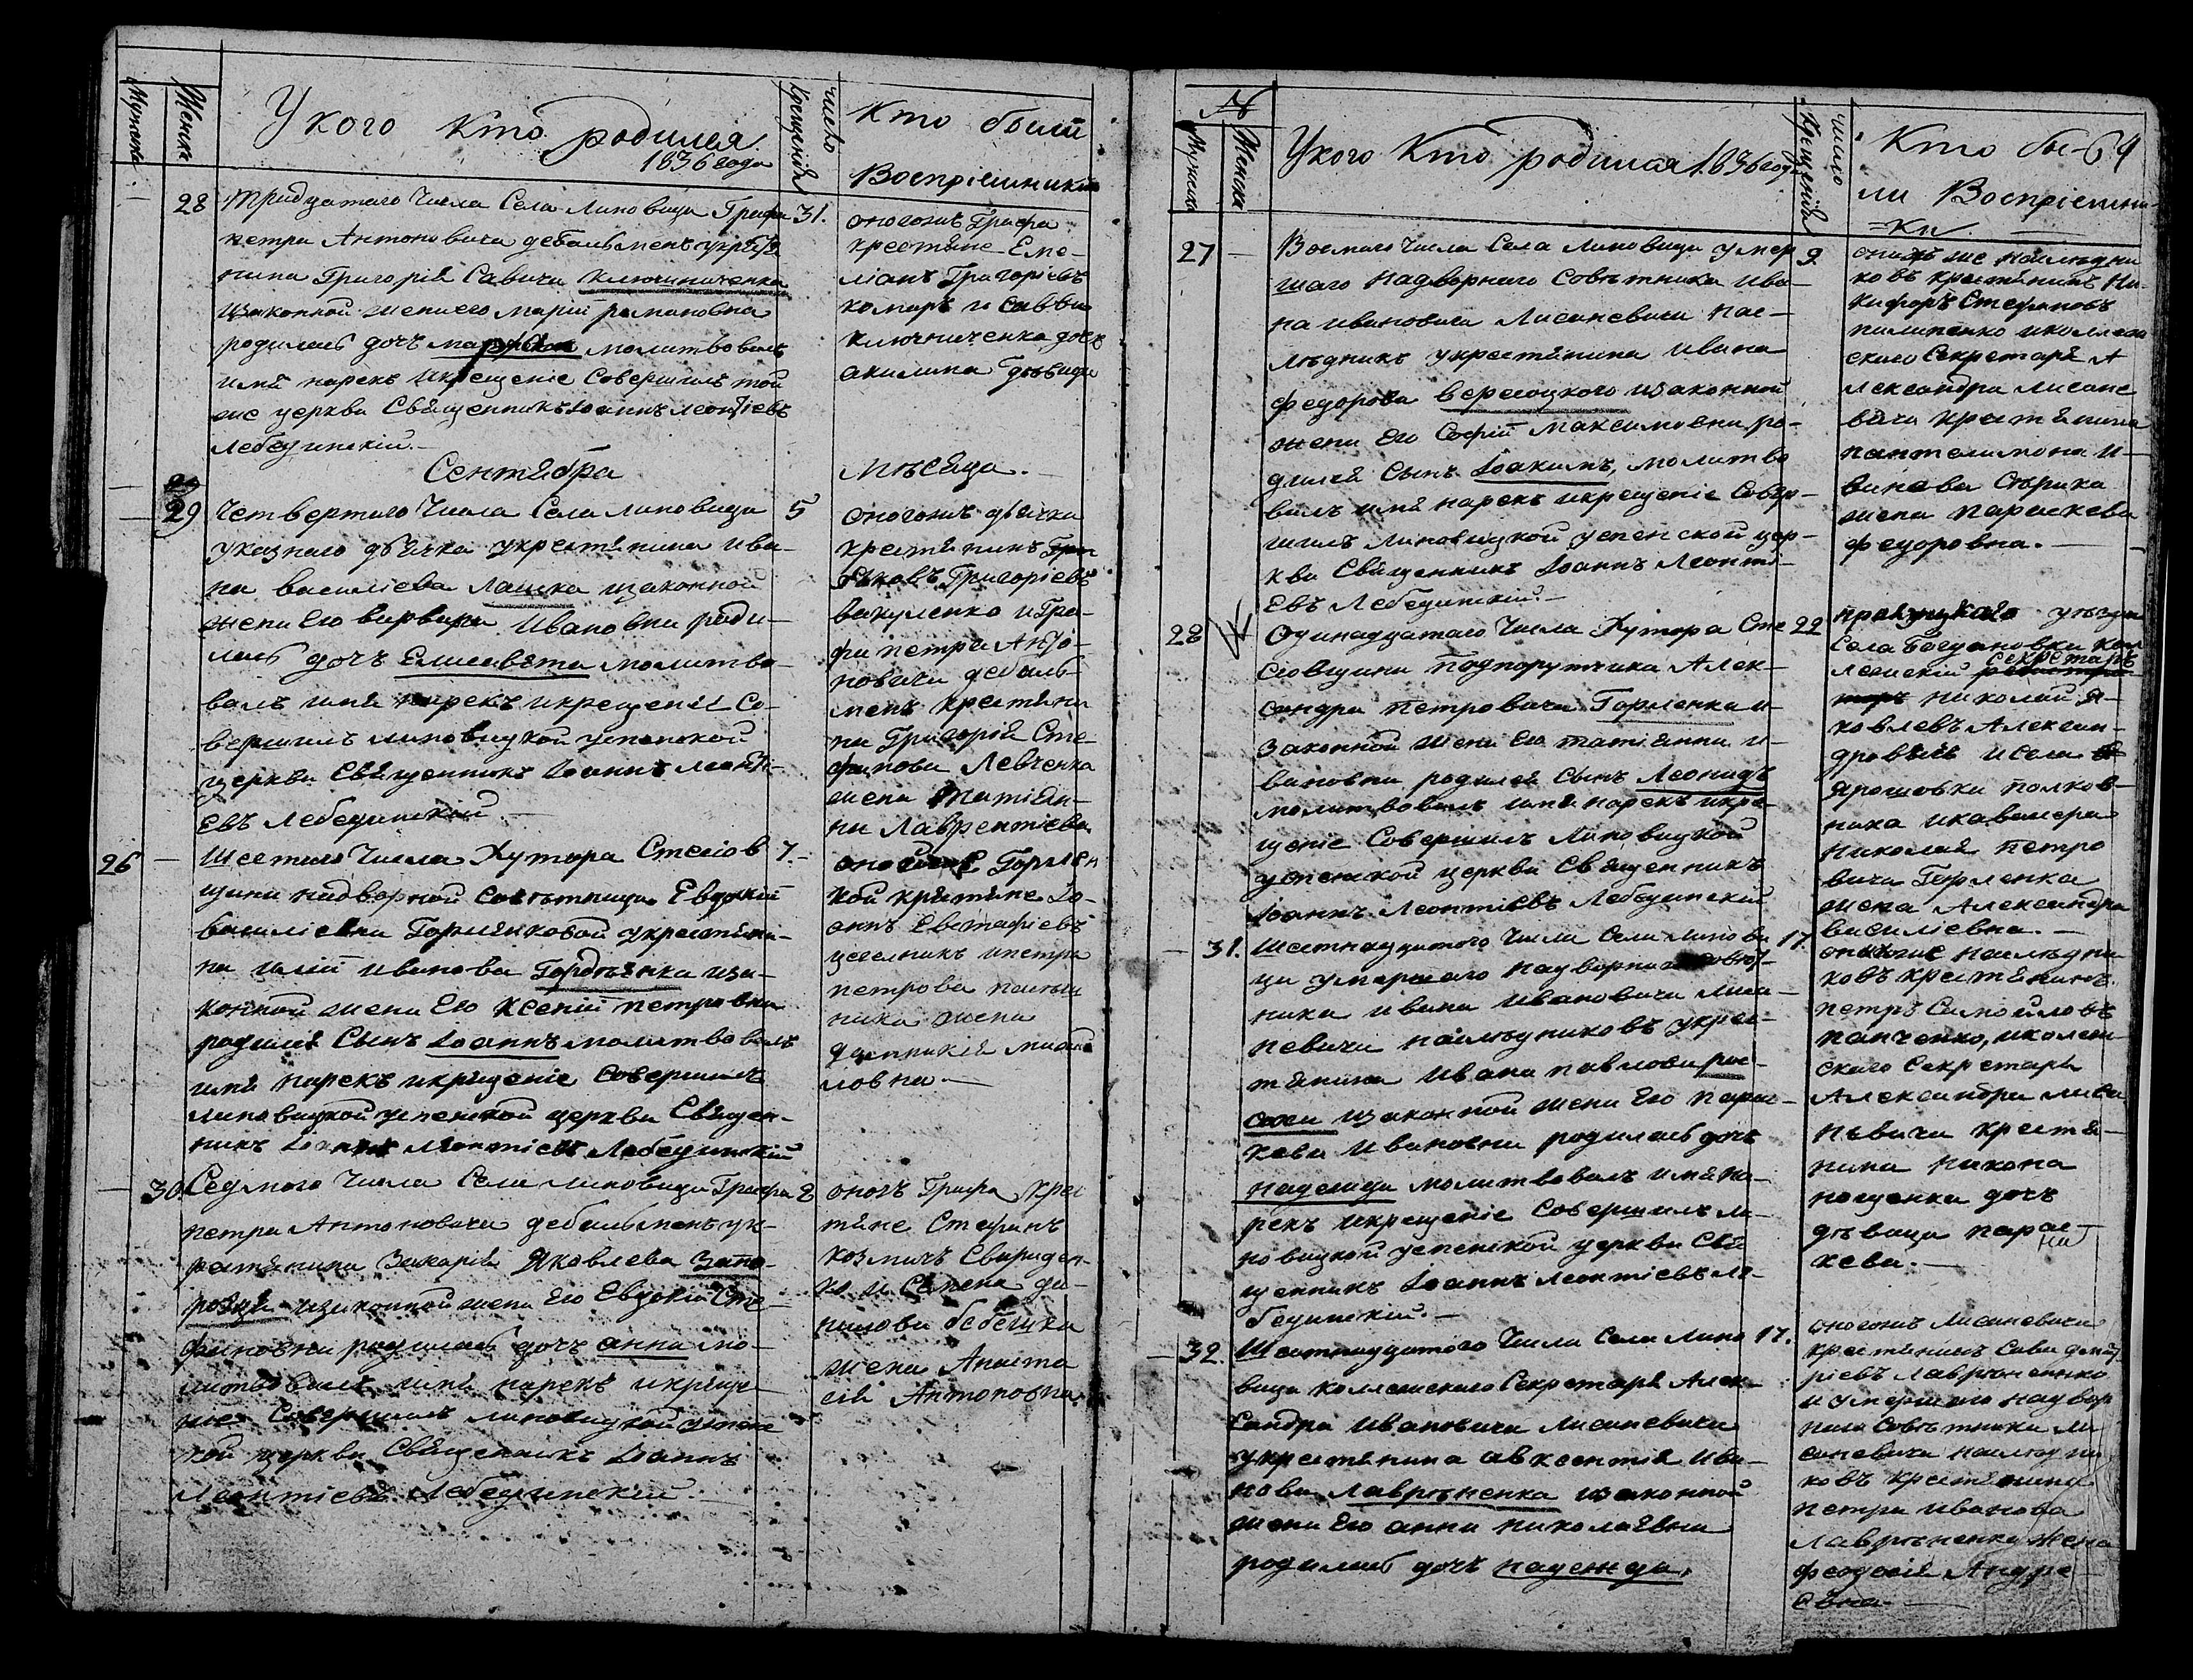 Мужеска
Женска
У кого кто родился
1836 года
число
крещенія
Кто были
Воспріемники
28
тридцатаго Числа Села Липовици Графа
31.
петра Антоновича дебальменъ укрестя
нина Григорія Савича Ключниченка
изаконной жени его Маріи романовна
родилась дочъ молитвовалъ
имя нарекъ икрещеніе Совершилъ той
же церкви Священникъ Іоаннъ Леонтіевъ
Лебединскій.
оногожъ Графа
крестяне Еме-
ліанъ Григоріевъ
комаръ и Савви
ключниченка дочь
акилина
Сентября
Мѣсяца.
29
Четвертаго Числа Села липовици
5
указнаго дьячка укрестянина ива-
на василіева Лашка изаконной
жени Его варвари Ивановни роди-
лась дочъ Елисавета молитво-
валъ имя нарекъ икрещеніе Со-
вершилъ липовицкой успенской
церкви Священникъ Іоаннъ леонті-
Евъ Лебединскій
оногожъ дьячка
крестянинъ
Яковъ Григоріевъ
вакуленко и Гра-
фа петра Анто-
новича дебаль-
менъ крестяни
на Григорія Сте-
фанова Левченка
жена татіян-
на Лаврентіева
26
Шестаго Числа Хутора Стасіов
7.
щини надворной Совѣтници Евдокіи
василіевни Горленковой укрестяни-
на иліи иванова Гордѣенка иза-
конной жени Его Ксеніи петровни
родился Сынъ Іоаннъ молитвовалъ
имя нарекъ икрещеніе Совершилъ
липовицкой успенской церкви Священ-
никъ Іоаннъ Леонтіевъ Лебединскій
Горлен
кой крестяне Іо-
аннъ Евстафіевъ
ипетра
петрова
ника жена
ловна
30
Седмого Числа Села липовици Графа
8
петра Антоновича дебальменъ ук-
рестянина Захарія Яковлева Запо-
рожця изаконной жени Его Евдокіи Сте-
фановни родилась дочъ анна мо-
литвовалъ имя нарекъ икреще
ніе Совершилъ липовицкой успенс
кой церкви Священникъ Іоаннъ
Леонтіевъ Лебединскій
оногъ Графа крес
тяне Стефанъ
козмичъ Свириден-
ко и Семена да-
нилова бебешка
жена Анаста
сія Антоновна
№
Мужеска
Женска
У кого Кто родился 1836 года
число
Крещенія
Кто бы-
64
ли Воспріемни-
ки
27
Восмого Числа Села липовици умер
9
шаго Надворнаго Совѣтника ива-
на ивановича Лисаневича нас-
лѣдникъ укрестянина ивана
федорова вересоцкого изаконной
жени Его Софіи Максимовни ро-
дился Сынъ Іоакимъ, молитво
валъ имя нарекъ икрещеніе Совер-
шилъ липовицкой успенской цер-
кви Священникъ Іоаннъ Леонті-
Евъ Лебединскій.
онихъ же наслѣдни
ковъ крестянинъ Ни-
кифоръ Стефановъ
пилипенко иколеж
скаго Секретаря А
лександра лисане
вича крестянина
пантелимона И-
ванова Сърика
жена параскева
федоровна.
28
Одинадцатаго Числа Хутора Ста
22
сіовщини Подпорутчика Алек-
сандра петровича Горленка и
законной жени Его татіянни и-
вановни родился Сынъ Леонидъ
молитвовалъ имя нарекъ икре-
щеніе Совершилъ Липовицкой
успенской церкви Священникъ
Іоаннъ Леонтіевъ Лебединскій
прилуцкаго уѣзда
Села Богдановки кол
лежскій Секретарь
николай я-
ковлевъ Алексан-
дровичъ и села
ярошовки полков-
ника икавалера
николая петро
вича Горленка
жена Александра
василіевна.
31.
Шестнадцатого Числа Села липови
17.
ци умершаго надворнаго Совѣт-
ника ивана ивановича лиса-
невича наслѣдниковъ укрес-
тянина ивана павлова рос-
сохи изаконной жени Его парас-
кеви Ивановни родилась дочъ
надежда молитвовалъ имя на-
рекъ икрещеніе Совершилъ ли-
повицкой успенской церкви Свя
щенникъ Іоаннъ леонтіевъ ле-
бединскій.
наслѣдни
ковъ крестянинъ
петръ Самойловъ
панченко, иколеж
скаго Секретаря
Александра лиса
нѣвича крестя-
нина никона
дочъ
дѣвица парас-
кева.
32.
Шестнадцатого Числа Села липо
17.
вици коллежскаго Секретаря Алек-
сандра ивановича лисаневича
укрестянина авксентія ива-
нова Лаврѣненка изаконной
жени Его анни николаевни
родилась дочъ надежда,
оногожъ Лисаневича
крестянинъ Сава дмит
ріевъ Лаврѣненко
и умершаго надвор
наго Совѣтника ли
саневича наслѣдни
ковъ крестянина
петра иванова
Лаврѣненка жена
феодосія Андре
Евна